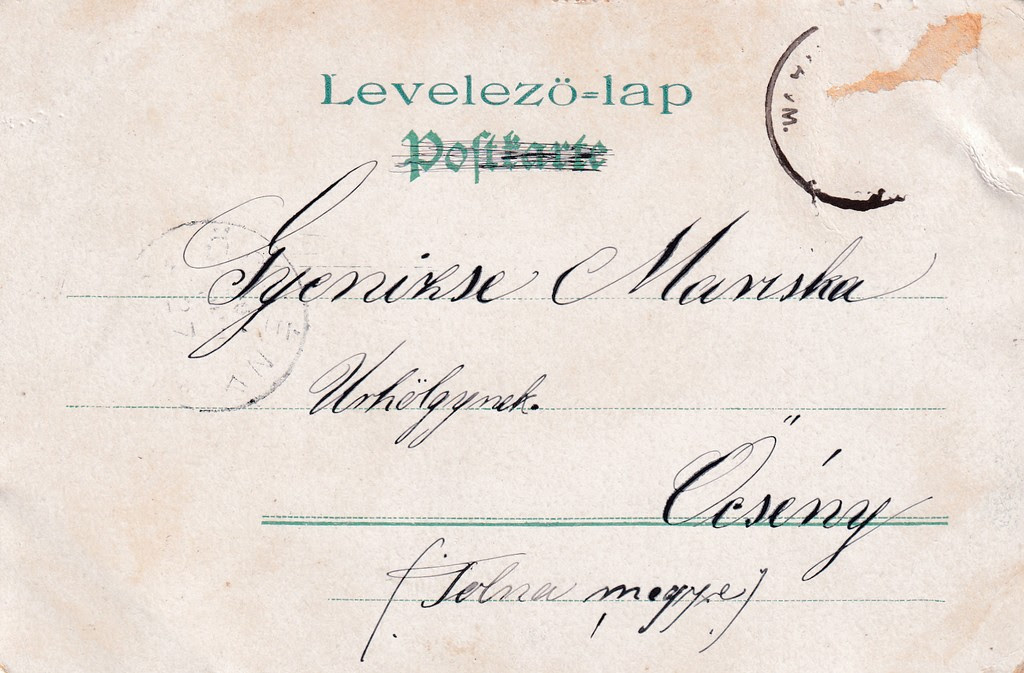 Levelezö-lap
Postkarte
Gyenikse Mariska
Urhölgynek.
Őcsény
(Tolna megye)